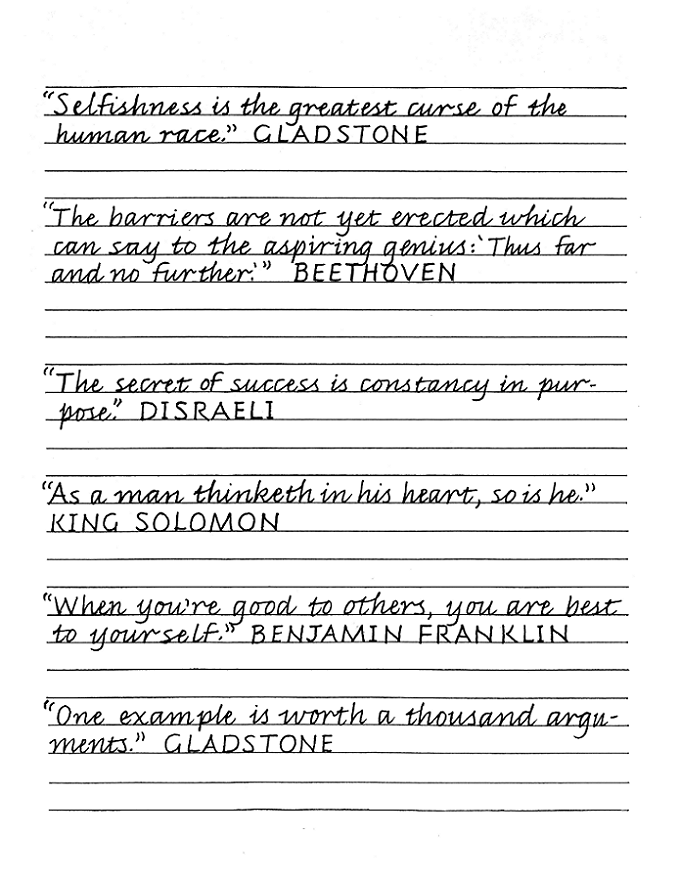 “Selfishness is the greatest curse of the
human race.” GLADSTONE
“The barriers are not yet erected which
can say to the aspiring genius: ‘Thus far
and no further.’” BEETHOVEN
“The secret of success is constancy in pur-
pose.” DISRAELI
“As a man thinketh in his heart, so is he.”
KING SOLOMON
“When you're good to others, you are best
to yourself.” BENJAMIN FRANKLIN
“One example is worth a thousand argu-
ments.” GLADSTONE